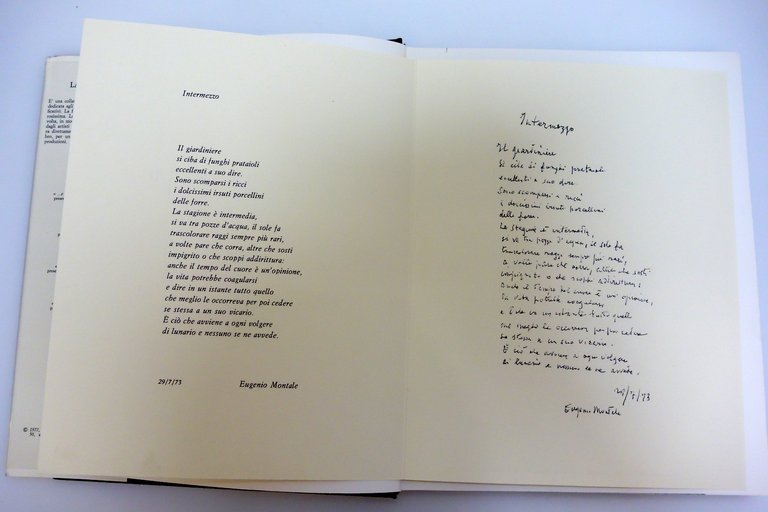 Intermezzo
Il giardiniere
si ciba di funghi prataioli
eccellenti a suo dire.
Sono scomparsi i ricci
i dolcissimi irsuti porcellini
delle forre.
La stagione è intermedia,
si va tra pozze d'acqua, il sole fa
trascolorare raggi sempre più rari,
a volte pare che corra, altre che sosti
impigrito o che scoppi addirittura:
anche il tempo del cuore è un'opinione,
la vita potrebbe coagularsi
e dire in un istante tutto quello
che meglio le occorreva per poi cedere
se stessa a un suo vicario.
È ciò che avviene a ogni volgere
di lunario e nessuno se ne avvede.
29/7/73 Eugenio Montale
Intermezzo
Il giardiniere
si ciba di funghi prataioli
eccellenti a suo dire.
Sono scomparsi i ricci
i dolcissimi irsuti porcellini
delle forre.
La stagione è intermedia,
si va tra pozze d'acqua, il sole fa
trascolorare raggi sempre più rari,
a volte pare che corra, altre che sosti
impigrito o che scoppi addirittura:
anche il tempo del cuore è un'opinione,
la vita potrebbe coagularsi
e dire in un istante tutto quello
che meglio le occorreva per poi cedere
se stessa a un suo vicario.
È ciò che avviene a ogni volgere
di lunario e nessuno se ne avvede.
29/7/73
Eugenio Montale